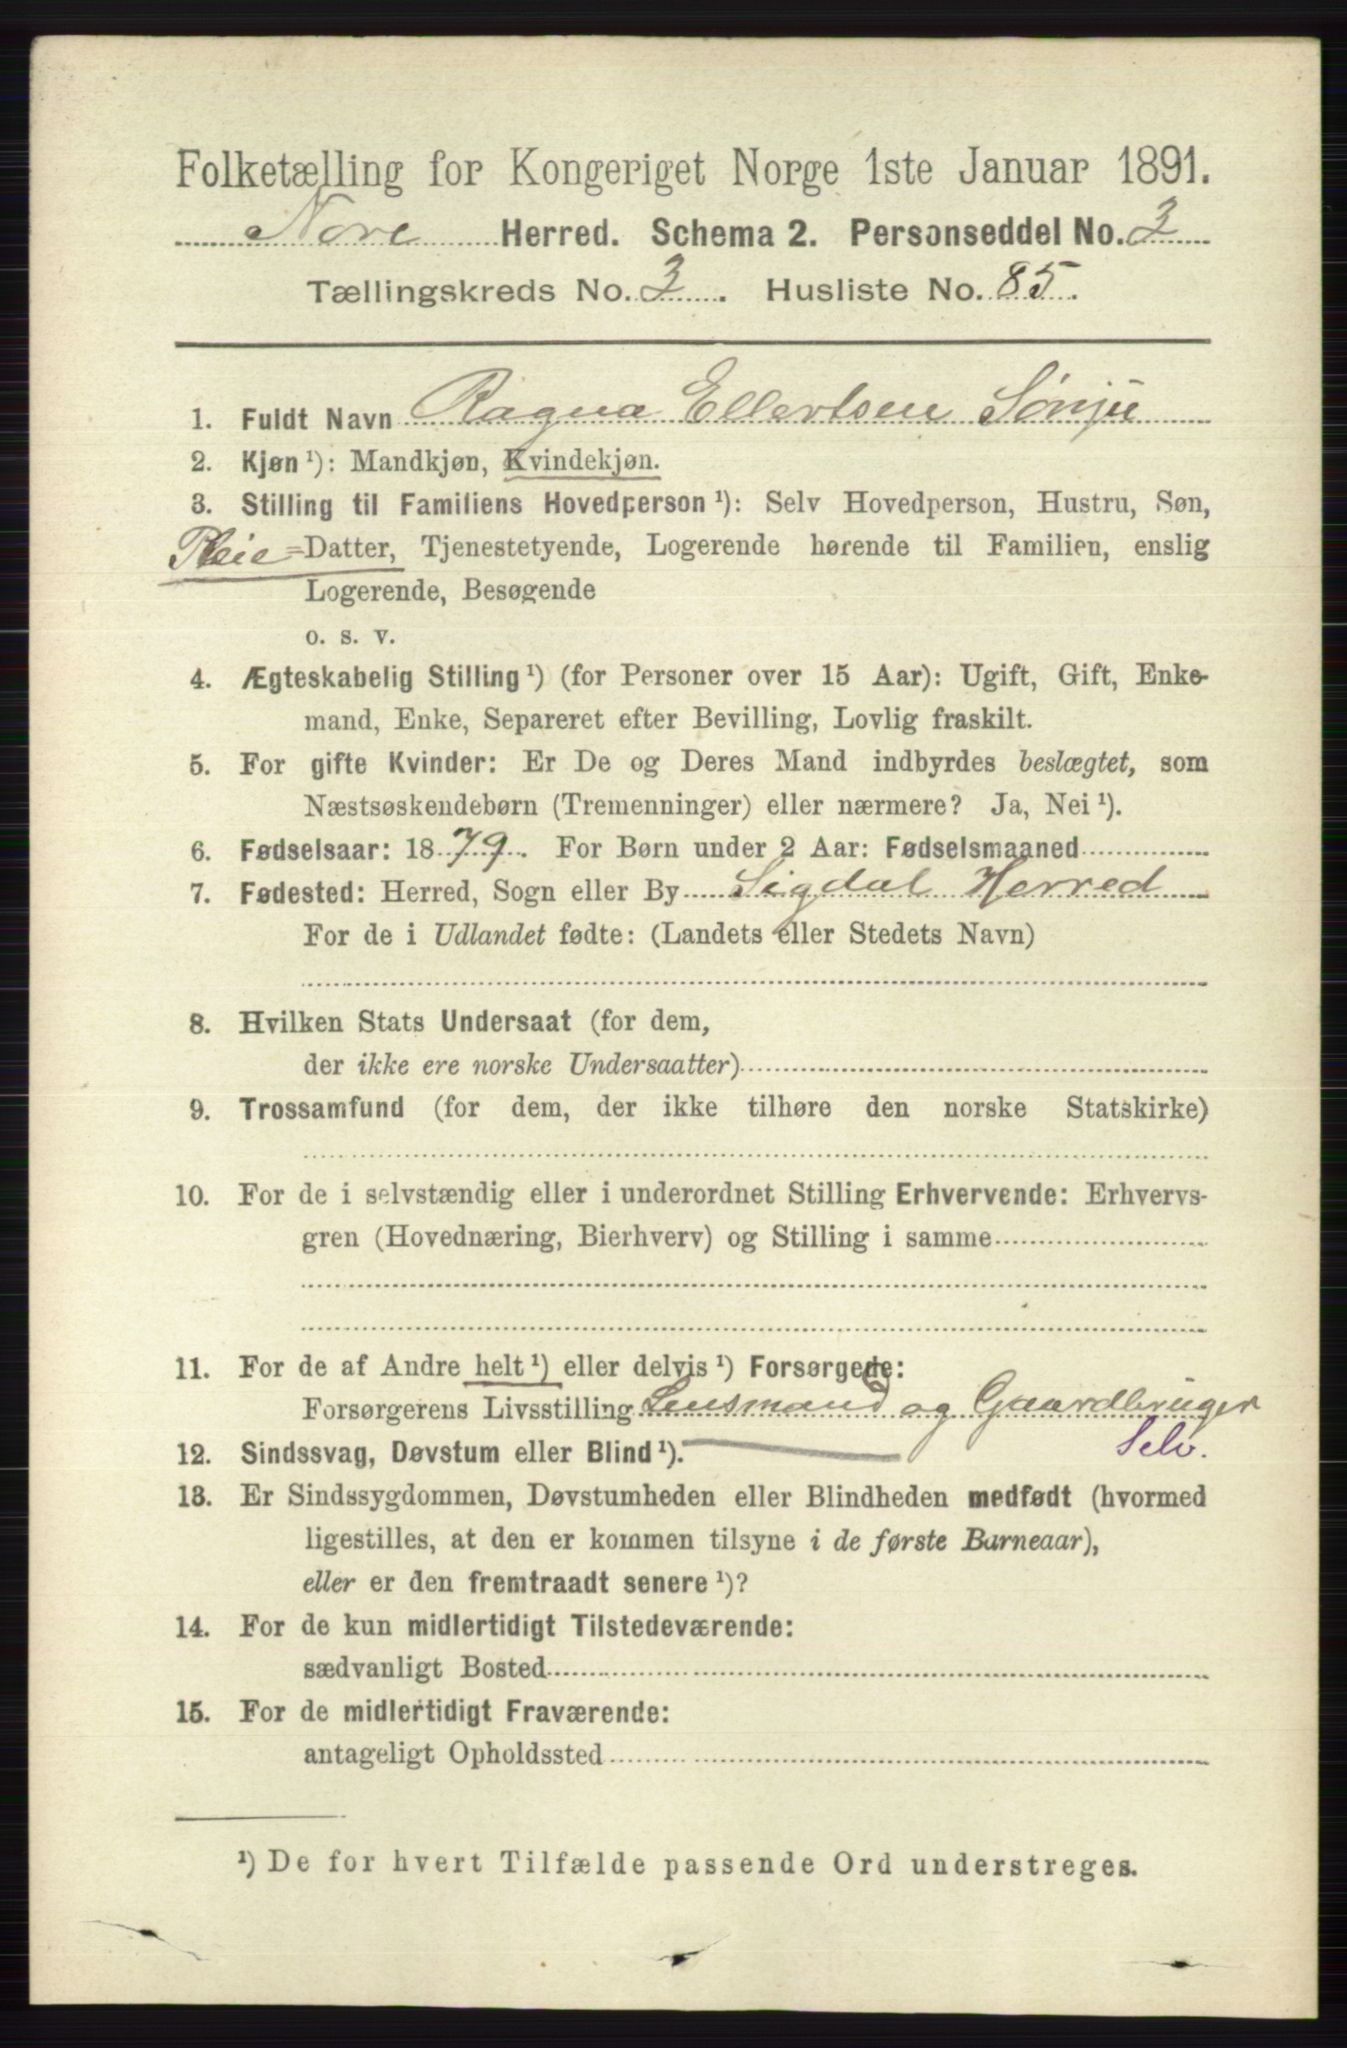 Folketælling for Kongeriget Norge 1ste Januar 1891.
Nore Herred. Schema 2. Personseddel No. 3
Tællingskreds No. 3. Husliste No. 85.
1. Fuldt Navn Ragna Ellertsen Sønju
2. Kjøn ¹): Mandkjøn, Kvindekjøn.
3. Stilling til Familiens Hovedperson ¹): Selv Hovedperson, Hustru, Søn,
Pleie=Datter, Tjenestetyende, Logerende hørende til Familien, enslig
Logerende, Besøgende
o. s. v.
4. Ægteskabelig Stilling ¹) (for Personer over 15 Aar): Ugift, Gift, Enke-
mand, Enke, Separeret efter Bevilling, Lovlig fraskilt.
5. For gifte Kvinder: Er De og Deres Mand indbyrdes beslægtet, som
Næstsøskendebørn (Tremenninger) eller nærmere? Ja, Nei ¹).
6. Fødselsaar: 1879. For Børn under 2 Aar: Fødselsmaaned
7. Fødested: Herred, Sogn eller By Sigdal Herred
For de i Udlandet fødte: (Landets eller Stedets Navn)
8. Hvilken Stats Undersaat (for dem,
der ikke ere norske Undersaatter)
9. Trossamfund (for dem, der ikke tilhøre den norske Statskirke)
10. For de i selvstændig eller i underordnet Stilling Erhvervende: Erhvervs-
gren (Hovednæring, Bierhverv) og Stilling i samme
11. For de af Andre helt ¹) eller delvis ¹) Forsørgede:
Forsørgerens Livsstilling Lensmand og Gaardbruger
Selv.
12. Sindssvag, Døvstum eller Blind ¹).
13. Er Sindssygdommen, Døvstumheden eller Blindheden medfødt (hvormed
ligestilles, at den er kommen tilsyne i de første Barneaar),
eller er den fremtraadt senere ¹)?
14. For de kun midlertidigt Tilstedeværende:
sædvanligt Bosted
15. For de midlertidigt Fraværende:
antageligt Opholdssted
¹) De for hvert Tilfælde passende Ord understreges.